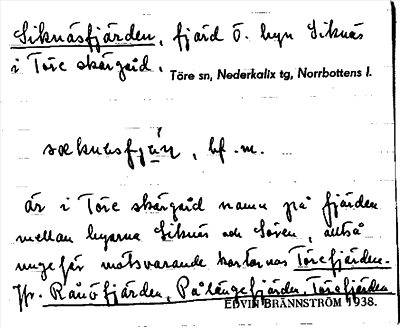 Siknäsfjärden, fjärd ö. byn Siknäs
i Töre skärgård. Töre sn, Nederkalix tg, Norrbottens l.
bf. m.
är i Töre skärgård namn på fjärden
mellan byarna Siknäs och Sören, alltså
ungefär motsvarande kartornas Törefjärden.
Jfr. Rånöfjärden, Pålängefjärden, Törefjärden
EDVIN BRÄNNSTRÖM 1938.